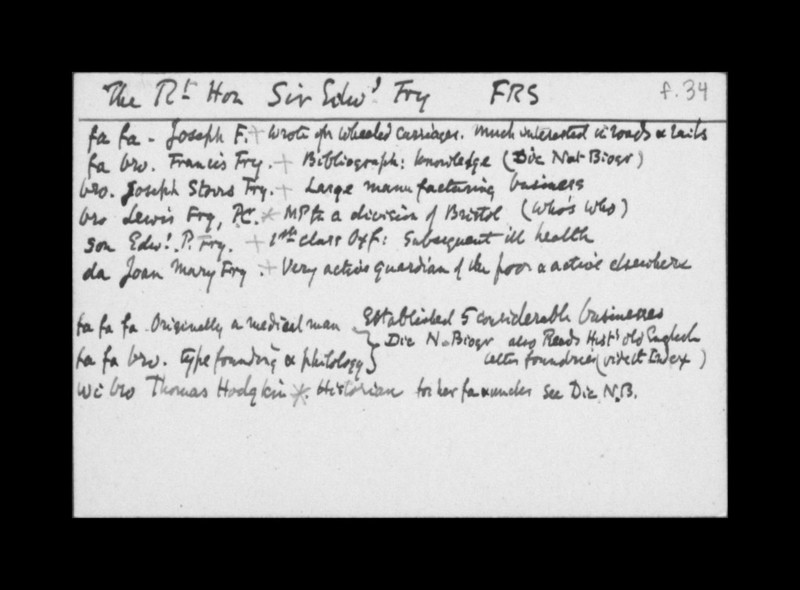 The Rt Hon Sir Edwd Fry FRS f.34
fa fa - Joseph F. + wrote on wheeled carriages. Much interested in roads & rails
fa bro. Francis Fry. + Bibliograph: knowledge (Dic Nat Biogr)
bro. Joseph Storrs Fry. + Large manufacturing business
bro Lewis Fry, PC. * MP for a division of Bristol (Who's Who)
son Edwd. P. Fry. + 1st class Oxf: Subsequent ill health
da Joan Mary Fry. + Very active guardian of the poor & active elsewhere
fa fa fa. Originally a medical man Established 5 considerable businesses
Dic N. Biogr also Reeds Hist: old English
fa fa bro. type founding & philology letter foundries (vide it Index)
wi bro Thomas Hodgkin *. Historian for her fa & uncles see Dic N.B.